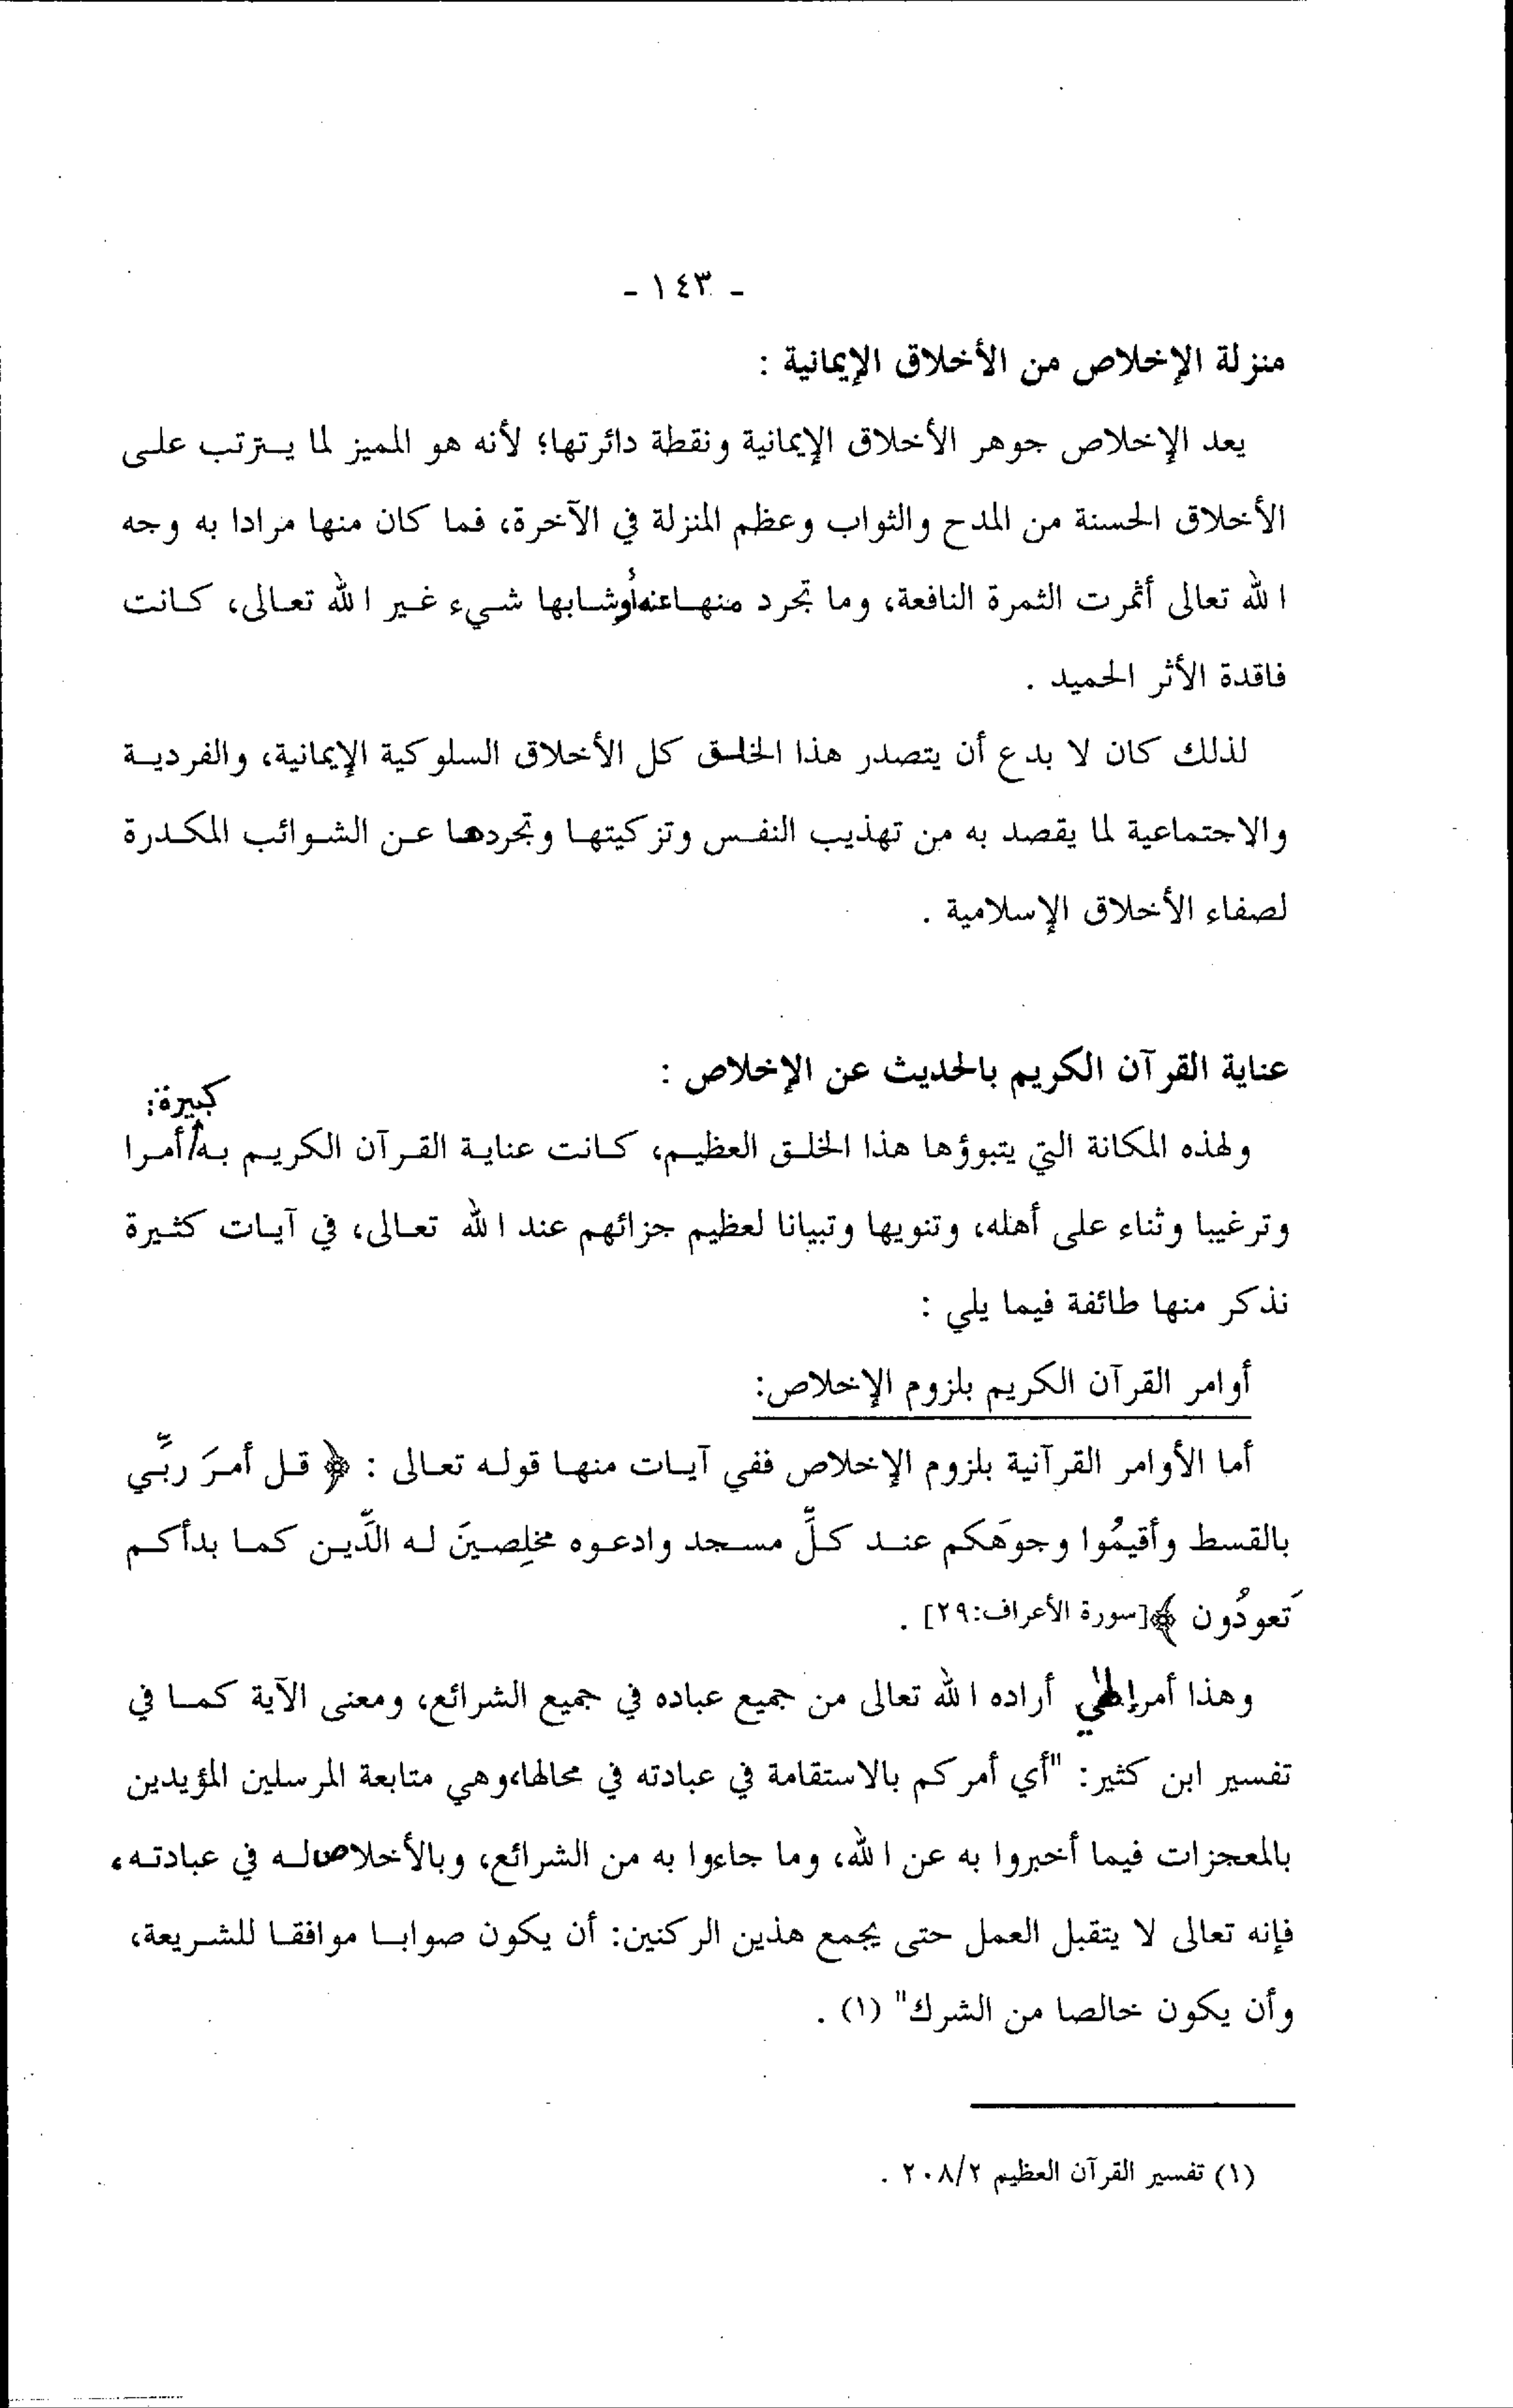 - ١٤٣ -
منزلة الإخلاص من الأخلاق الإيمانية :
يعد الإخلاص جوهر الأخلاق الإيمانية ونقطة دائرتها؛ لأنه هو المميز لما يترتب على
الأخلاق الحسنة من المدح والثواب وعظم المنزلة في الآخرة، فما كان منها مرادا به وجه
الله تعالى أثمرت الثمرة النافعة، وما تجرد منها عنه أو شابها شيء غير الله تعالى، كانت
فاقدة الأثر الحميد .
لذلك كان لا بدع أن يتصدر هذا الخلق كل الأخلاق السلوكية الإيمانية، والفردية
والاجتماعية لما يقصد به من تهذيب النفس وتزكيتها وتجردها عن الشوائب المكدرة
لصفاء الأخلاق الإسلامية .
عناية القرآن الكريم بالحديث عن الإخلاص :
كبيرة:
ولهذه المكانة التي يتبوؤها هذا الخلق العظيم، كانت عناية القرآن الكريم به/ أمرا
وترغيبا وثناء على أهله، وتنويها وتبيانا لعظيم جزائهم عند الله تعالى، في آيات كثيرة
نذكر منها طائفة فيما يلي :
أوامر القرآن الكريم بلزوم الإخلاص:
أما الأوامر القرآنية بلزوم الإخلاص ففي آيات منها قوله تعالى : ﴿ قل أمرَ ربِّي
بالقسط وأقيمُوا وجوهَكم عند كلِّ مسجد وادعوه مخلِصينَ له الدِّين كما بدأكم
تَعودُون ﴾[سورة الأعراف:٢٩] .
وهذا أمر إلهي أراده الله تعالى من جميع عباده في جميع الشرائع، ومعنى الآية كما في
تفسير ابن كثير: "أي أمركم بالاستقامة في عبادته في محالها،وهي متابعة المرسلين المؤيدين
بالمعجزات فيما أخبروا به عن الله، وما جاءوا به من الشرائع، وبالأخلاص له في عبادته،
فإنه تعالى لا يتقبل العمل حتى يجمع هذين الركنين: أن يكون صوابا موافقا للشريعة،
وأن يكون خالصا من الشرك" (١) .
(١) تفسير القرآن العظيم ٢٠٨/٢ .